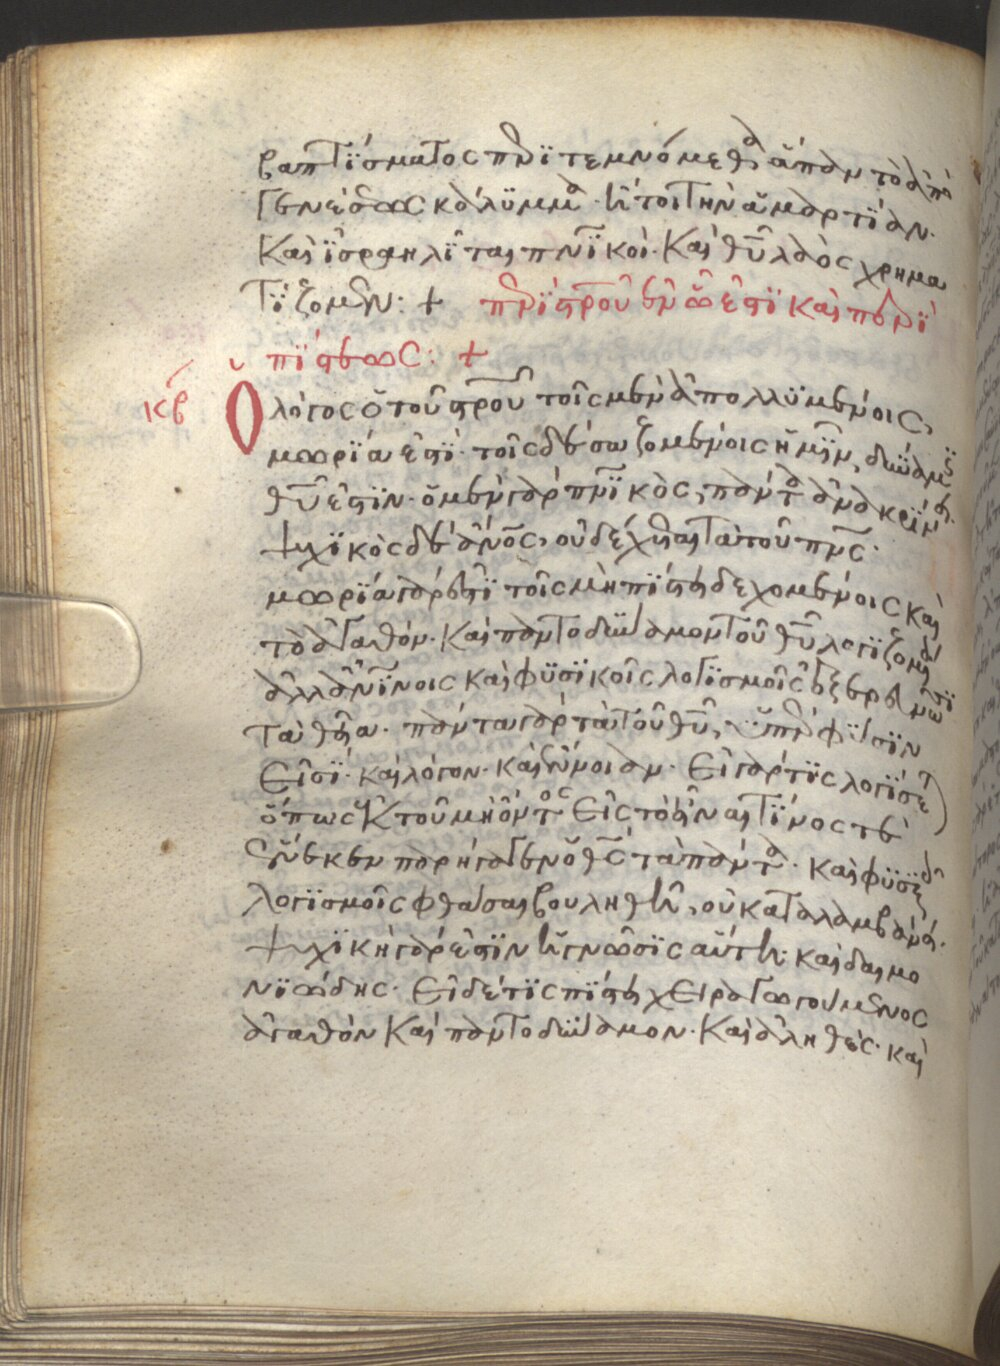 βαπτίσματος περιτεμνόμεθα ἅπαν τὸ ἀπὸ
γενέσεως κάλυμμα· ἤτοι τὴν ἁμαρτίαν·
καὶ ἰσραηλῖται πνικοὶ· καὶ θῦ λαὸς χρημα
τίζομεν: + περὶ στροῦ ἐν ᾧ ἐστὶ καὶ περὶ
πίστεως: +
κβ Ὁ λόγος ὁ τοῦ στροῦ τοῖς μὲν ἀπολλυμένοις,
μωρία ἐστί· τοῖς δὲ σωζομένοις ἡμῖν, δύναμις
θῦ ἐστιν· ὁ μὲν γὰρ πνικὸς, πάντα ἀνακρίνει·
ψυχικὸς δὲ ἄνος, οὐ δέχεται τὰ τοῦ πνς·
μωρία γάρ ἐστι τοῖς μὴ πίστει δεχομένοις καὶ
τὸ ἀγαθόν· καὶ παντοδύναμον τοῦ θῦ λογιζομένοις
ἀλλ' ἀνίνοις καὶ φυσικοῖς λογισμοῖς ἐξερευνῶσι
τὰ θεῖα· πάντα γὰρ τὰ τοῦ θῦ, ὑπὲρ φύσιν
εἰσὶ· καὶ λόγον· καὶ ἔννοιαν· εἰ γάρ τις λογίσεται
ὅπως ἐκ τοῦ μὴ ὄντος εἰς τὸ εἶναι τίνος τε
ἕνεκεν παρήγαγεν ὁ θς τὰ πάντα· καὶ φυσικοῖς
λογισμοῖς φθάσαι βουληθῆ, οὐ καταλαμβάνει·
ψυχικὴ γάρ ἐστιν ἡ γνῶσις αὕτη· καὶ δαιμο
νιώδης· εἰ δέ τις πίστει χειραγωγούμενος
ἀγαθὸν καὶ παντοδύναμον· καὶ ἀληθὲς· καὶ